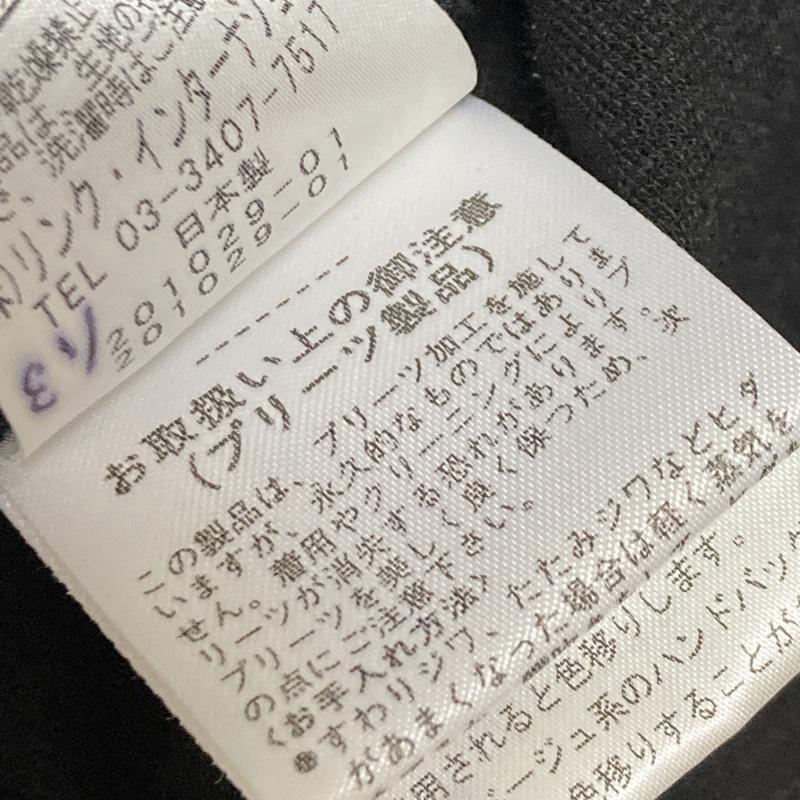 乾燥禁止
品は、生地の
洗濯時はご注
リンク・インターナショ
TEL 03-3407-7517
日本製
201029-01
201029-01
お取扱い上の御注意
(プリーツ製品)
この製品は、プリーツ加工を施して
いますが、永久的なものではありま
せん。着用やクリーニングによりプ
リーツが消失する恐れがあります。
プリーツを美しく良く保つため、次
の点にご注意下さい。
〈お手入れ方法〉
●すわりジワ、たたみジワなどヒダ
があまくなった場合は軽く蒸気を
用されると色移りします。
ージュ系のハンドバック
色移りすることが